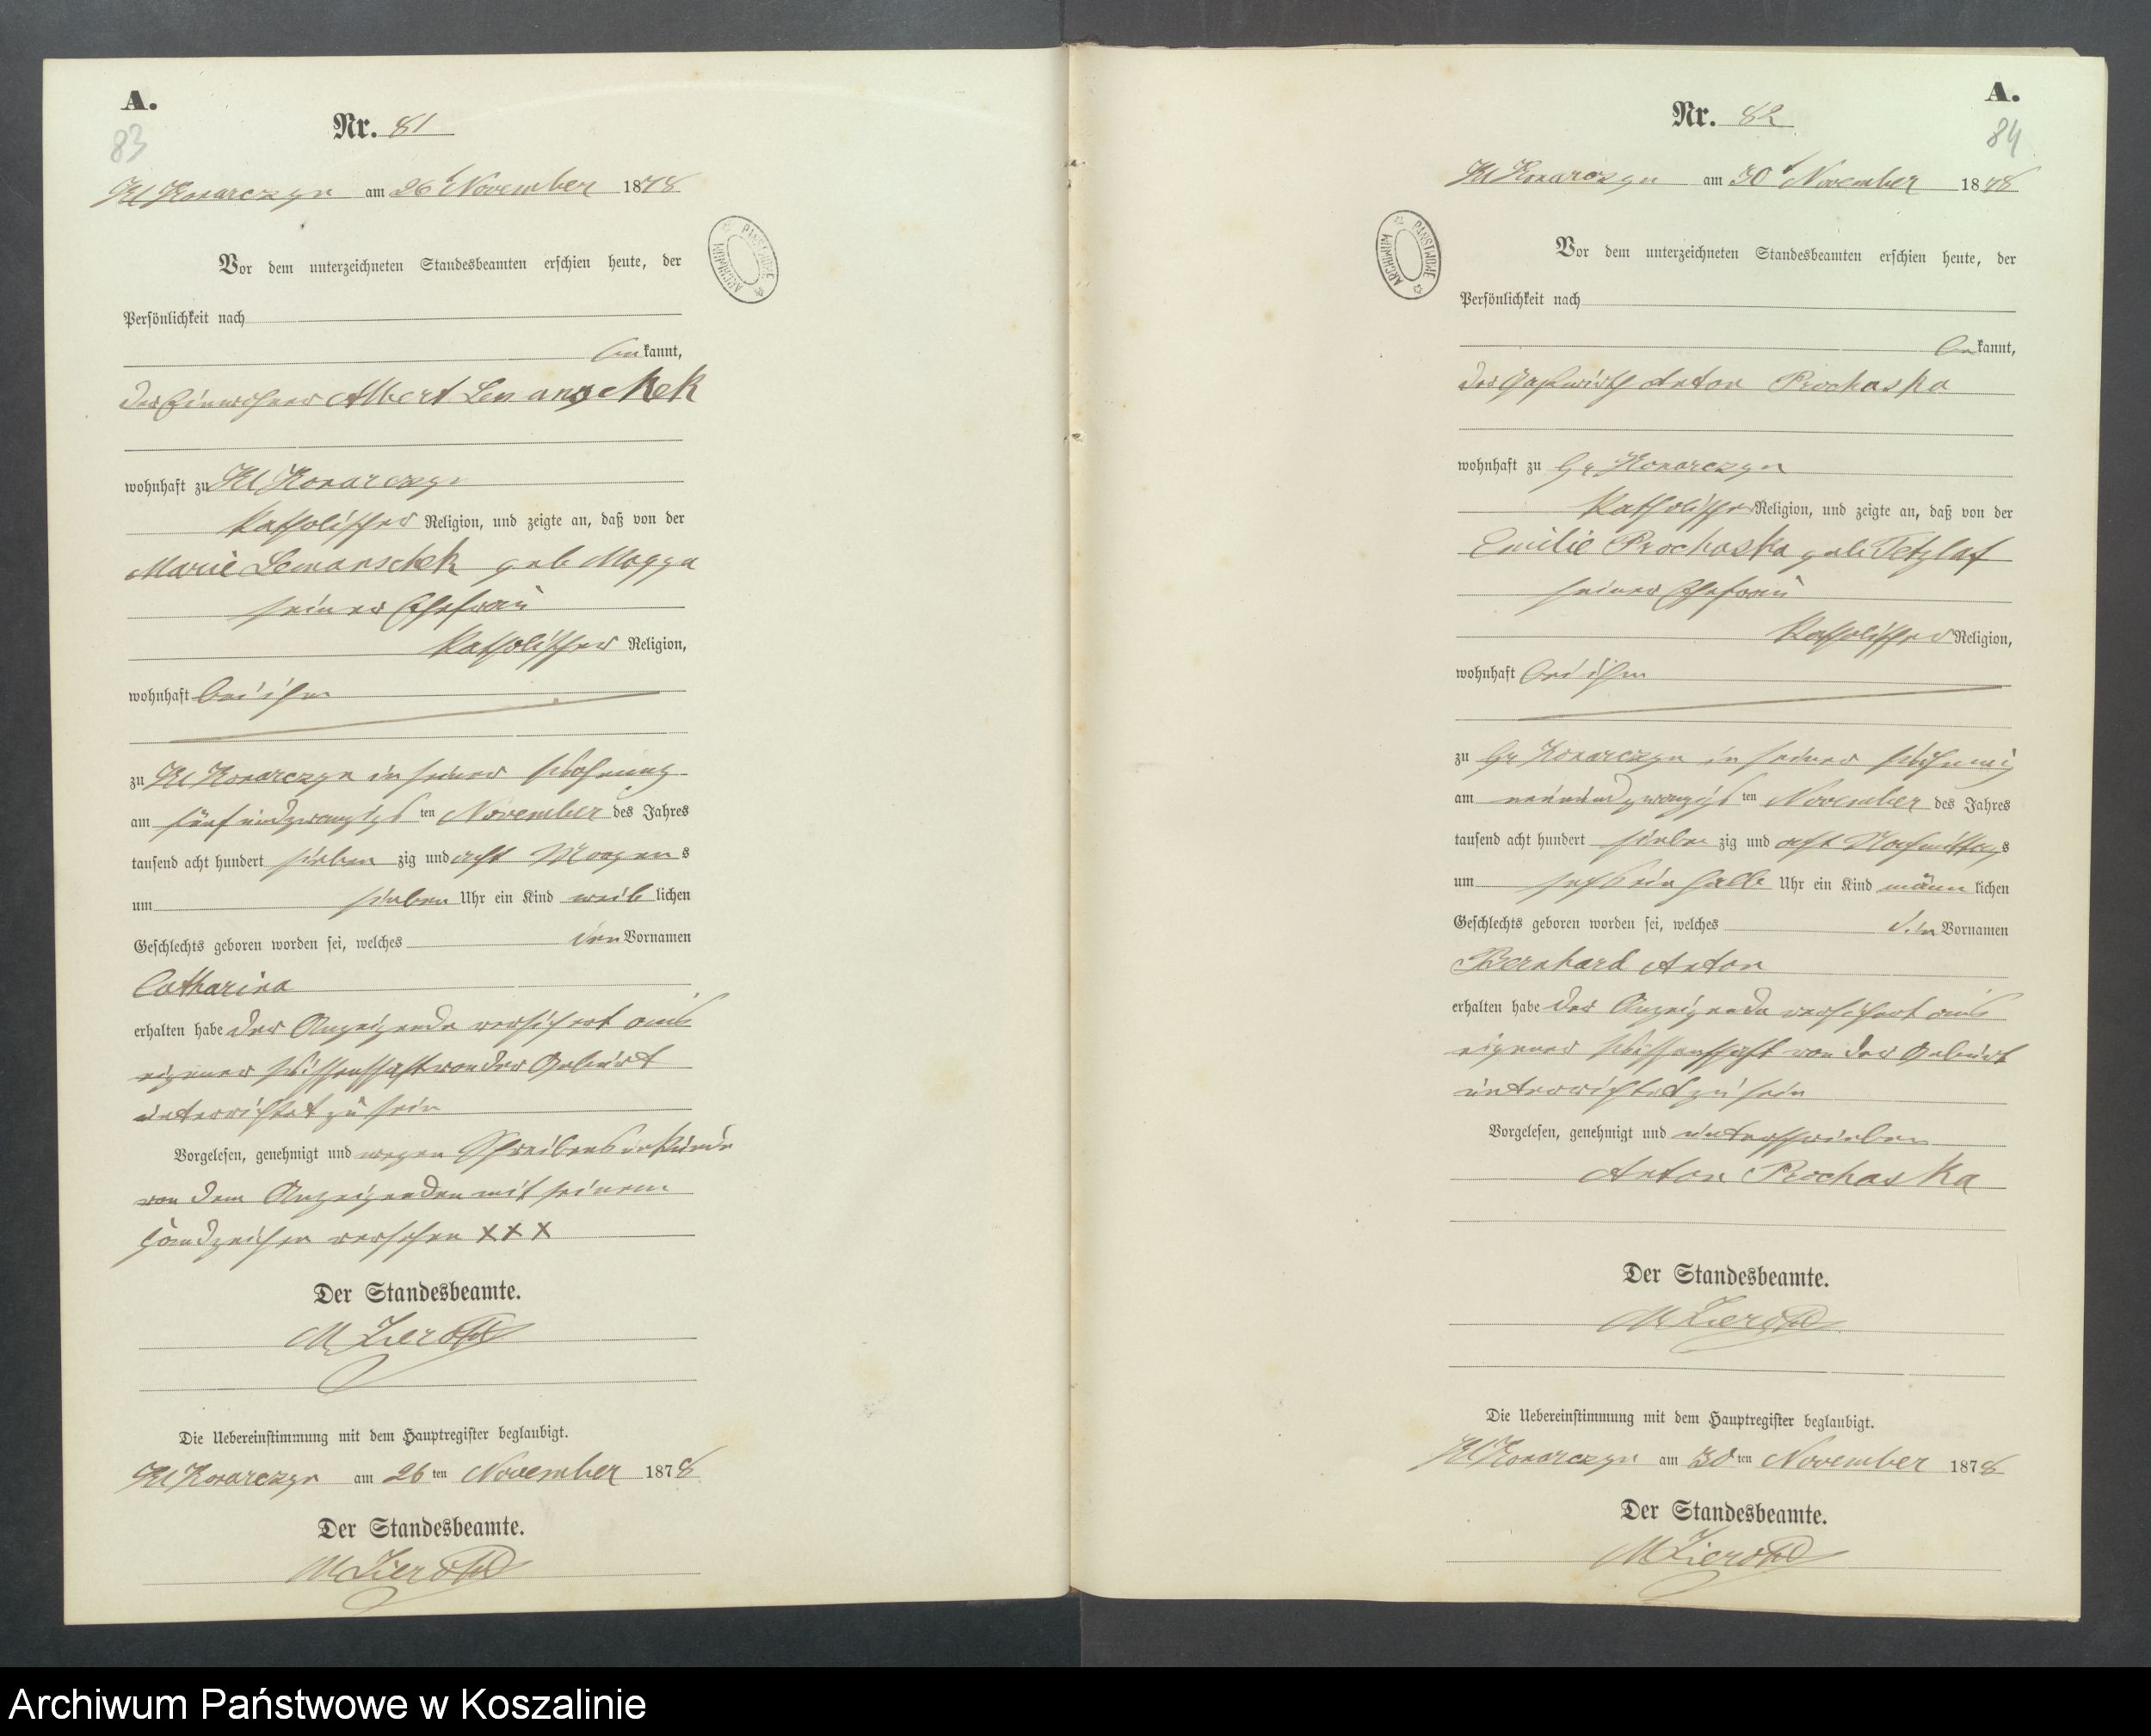 A.
83
Nr. 81
Kl Konarczyn am 26t November 1878
ARCHIWUM PAŃSTWOWE
Vor dem unterzeichneten Standesbeamten erschien heute, der
Persönlichkeit nach
bekannt,
der Einwohner Albert Lemanschek
wohnhaft zu Kl Konarczyn
katholischer Religion, und zeigte an, daß von der
Marie Lemanschek geb
seiner Ehefrau
katholischer Religion,
wohnhaft bei ihm
zu Kl Konarczyn in seiner Wohnung
am fünfundzwanzigsten November des Jahres
tausend acht hundert siebenzig und acht Morgens
um sieben Uhr ein Kind weiblichen
Geschlechts geboren worden sei, welches den Vornamen
Catharina
erhalten habe der Anzeigende versichert aus
eigener Wissenschaft von der Geburt
unterrichtet zu sein
Vorgelesen, genehmigt und wegen Schreibensunkunde
von dem Anzeigenden mit seinem
Handzeichen versehen XXX
Der Standesbeamte.
Die Uebereinstimmung mit dem Hauptregister beglaubigt.
Kl Konarczyn am 26ten November 1878
Der Standesbeamte.
A.
84
Nr. 82
Kl Konarczyn am 30t November 1878
ARCHIWUM PAŃSTWOWE
Vor dem unterzeichneten Standesbeamten erschien heute, der
Persönlichkeit nach
bekannt,
der Gastwirth Anton Prochaska
wohnhaft zu Gr Konarczyn
katholischer Religion, und zeigte an, daß von der
Emilie Prochaska geb Tetzlaf
seiner Ehefrau
katholischer Religion,
wohnhaft bei ihm
zu Gr Konarczyn in seiner Wohnung
am neunundzwanzigsten November des Jahres
tausend acht hundert siebenzig und acht Nachmittags
um sechs ein halb Uhr ein Kind männlichen
Geschlechts geboren worden sei, welches den Vornamen
Bernhard Anton
erhalten habe der Anzeigende versichert aus
eigener Wissenschaft von der Geburt
unterrichtet zu sein
Vorgelesen, genehmigt und unterschrieben
Anton Prochaska
Der Standesbeamte.
Die Uebereinstimmung mit dem Hauptregister beglaubigt.
Kl Konarczyn am 30ten November 1878
Der Standesbeamte.
Archiwum Państwowe w Koszalinie